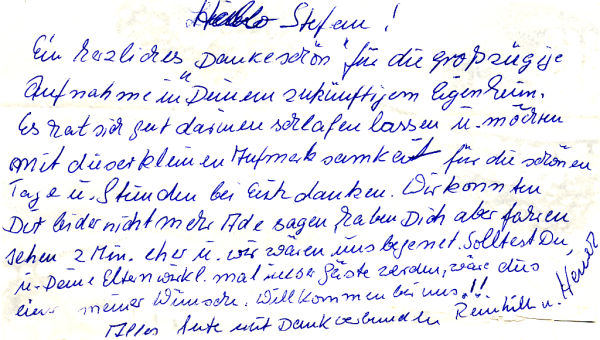 Hallo Stefan!
Ein herzliches Dankeschön für die großzügige
Aufnahme in Deinem zukünftigem Eigenheim.
Es hat sich gut darinnen schlafen lassen u. möchten
mit dieser kleinen Aufmerksamkeit für die schönen
Tage u. Stunden bei Euch danken. Wir konnten
Dir leider nicht mehr Ade sagen haben Dich aber fahren
sehen 2 Min. eher u. wir wären uns begegnet. Solltest Du,
u. Deine Eltern wirkl. mal unser Gäste werden, wäre dies
einer meiner Wünsche. Willkommen bei uns!!
Alles Gute mit Dank verbunden u.